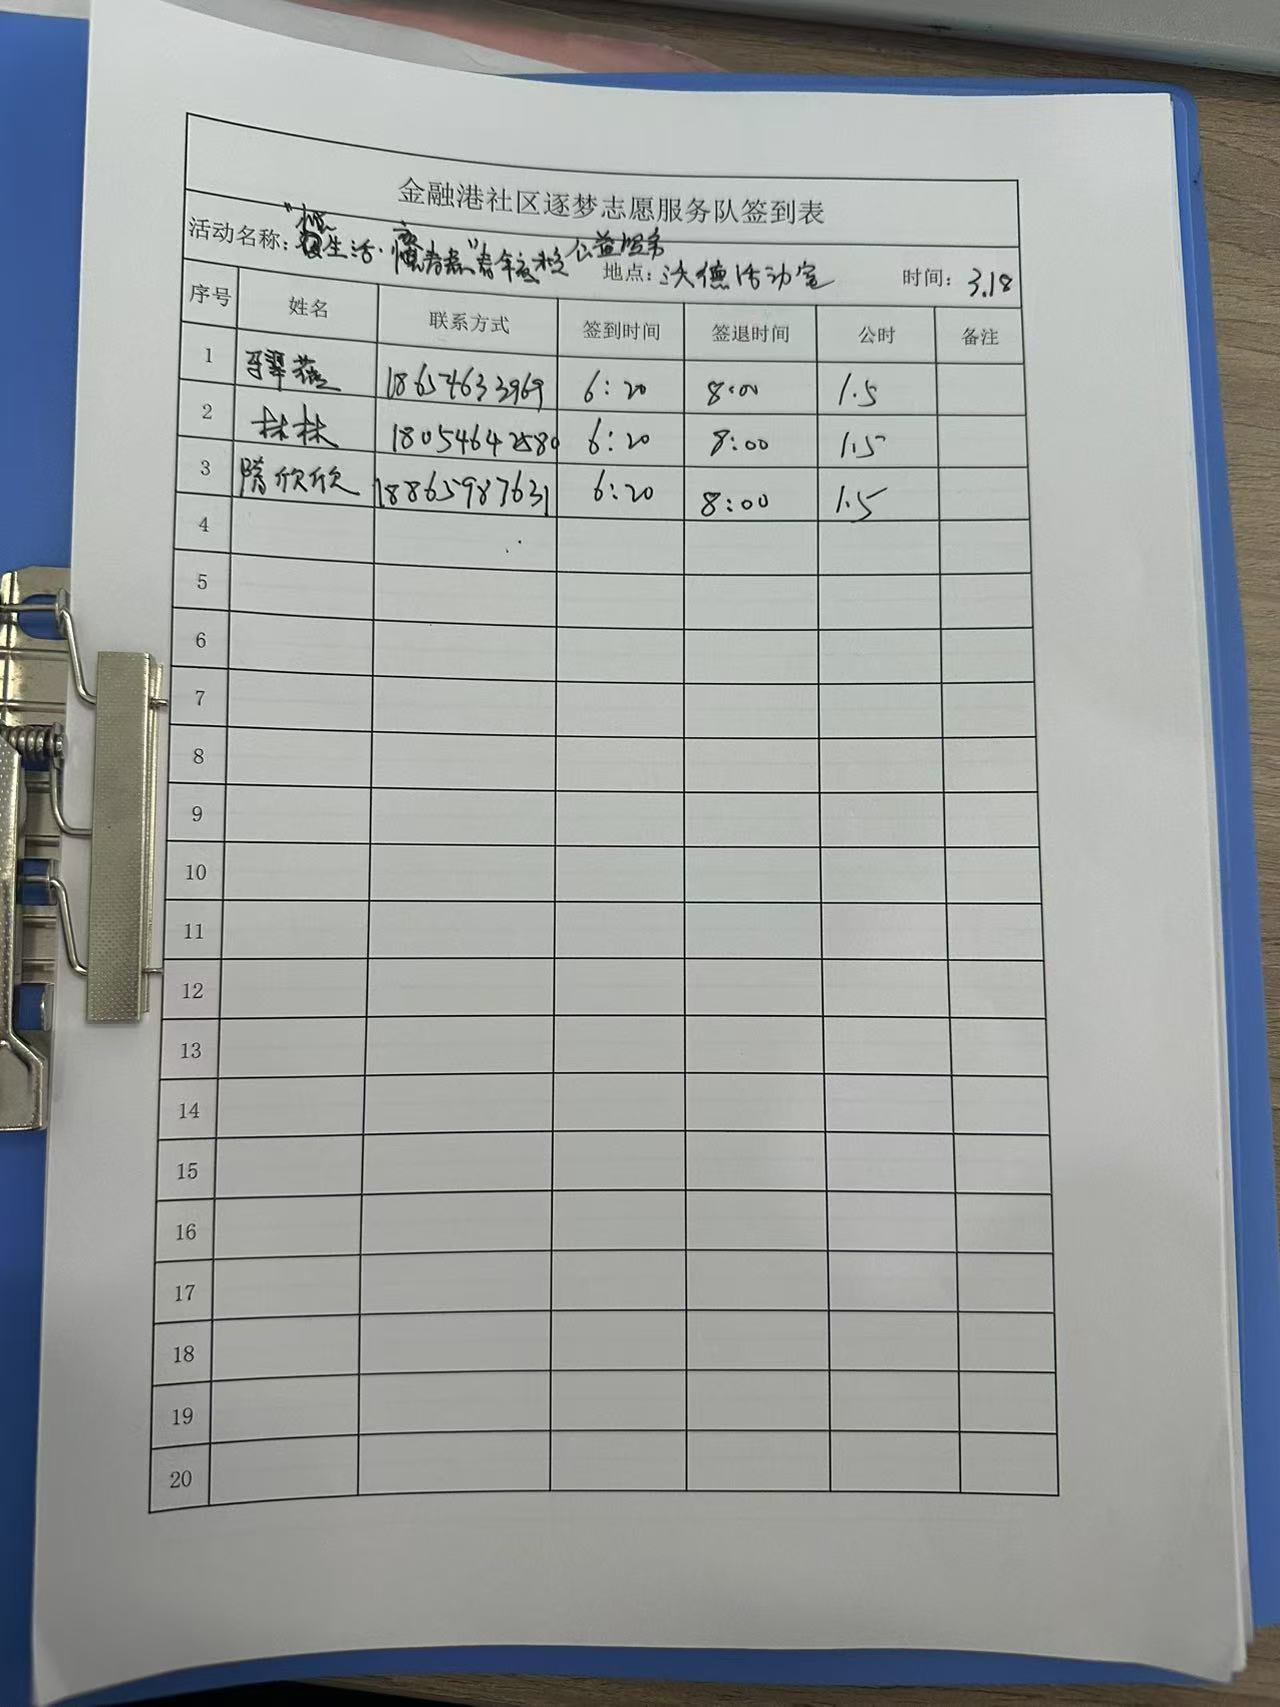 金融港社区逐梦志愿服务队签到表
活动名称: 生活· 青年夜校 公益服务 地点: 沃德活动室 时间: 3.18
序号 姓名 联系方式 签到时间 签退时间 公时 备注
1 18654633969 6:20 8:00 1.5
2 林林 18054642580 6:20 8:00 1.5
3 隋欣欣 18865987631 6:20 8:00 1.5
4
5
6
7
8
9
10
11
12
13
14
15
16
17
18
19
20